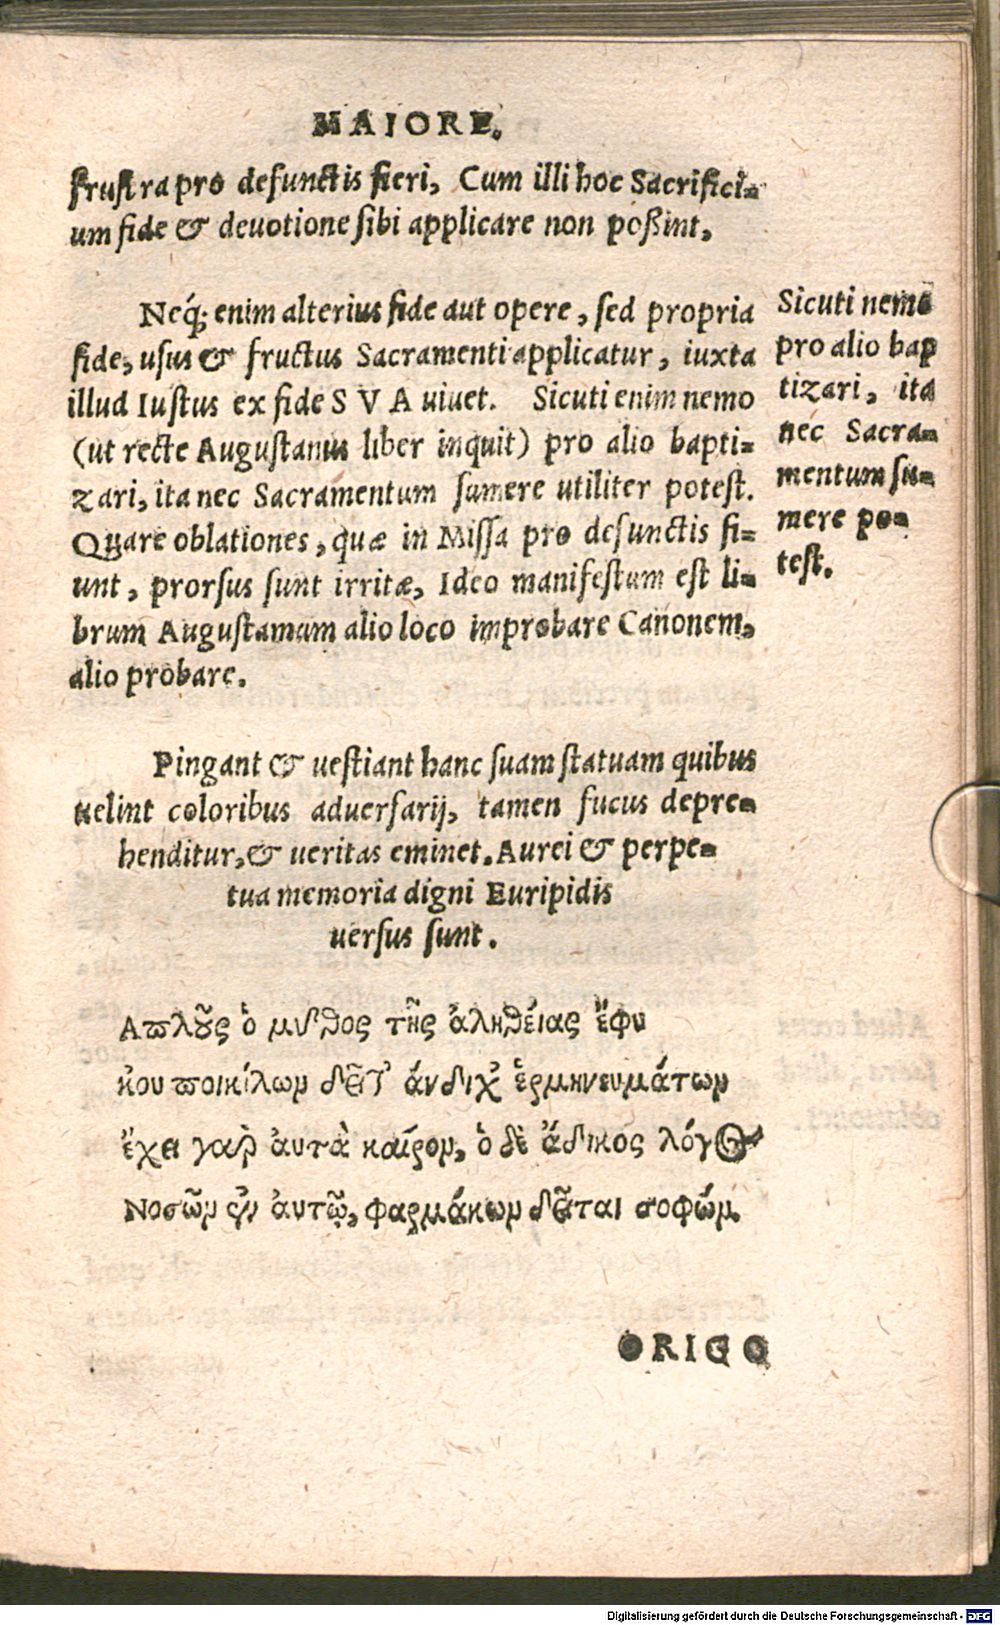 MAIORE.
frustra pro defunctis fieri, Cum illi hoc Sacrifici-
um fide & deuotione sibi applicare non poßint,
Neq; enim alterius fide aut opere, sed propria
fide, usus & fructus Sacramenti applicatur, iuxta
illud Iustus ex fide S V A uiuet. Sicuti enim nemo
(ut recte Augustanus liber inquit) pro alio bapti-
zari, ita nec Sacramentum sumere utiliter potest.
Quare oblationes, quæ in Missa pro defunctis fi-
unt, prorsus sunt irritæ, Ideo manifestum est li-
brum Augustanum alio loco improbare Canonem,
alio probare.
Sicuti nemo
pro alio bap
tizari, ita
nec Sacra-
mentum su-
mere po-
test.
Pingant & uestiant hanc suam statuam quibus
uelint coloribus aduersarij, tamen fucus depre-
henditur, & ueritas eminet. Aurei & perpe-
tua memoria digni Euripidis
uersus sunt.
Απλοῦς ὁ μυθος τῆς ἀληθείας ἔφυ
κου ποικίλων δεῖτ’ ἀνδιχ’ ἑρμηνευμάτων
ἔχει γαρ ἀυτὰ καίρον, ὁ δὲ ἄδικος λόγος
Νοσῶν ἐν ἀυτῷ, φαρμάκων δεῖται σοφῶν.
ORIGO
Digitalisierung gefördert durch die Deutsche Forschungsgemeinschaft - DFG